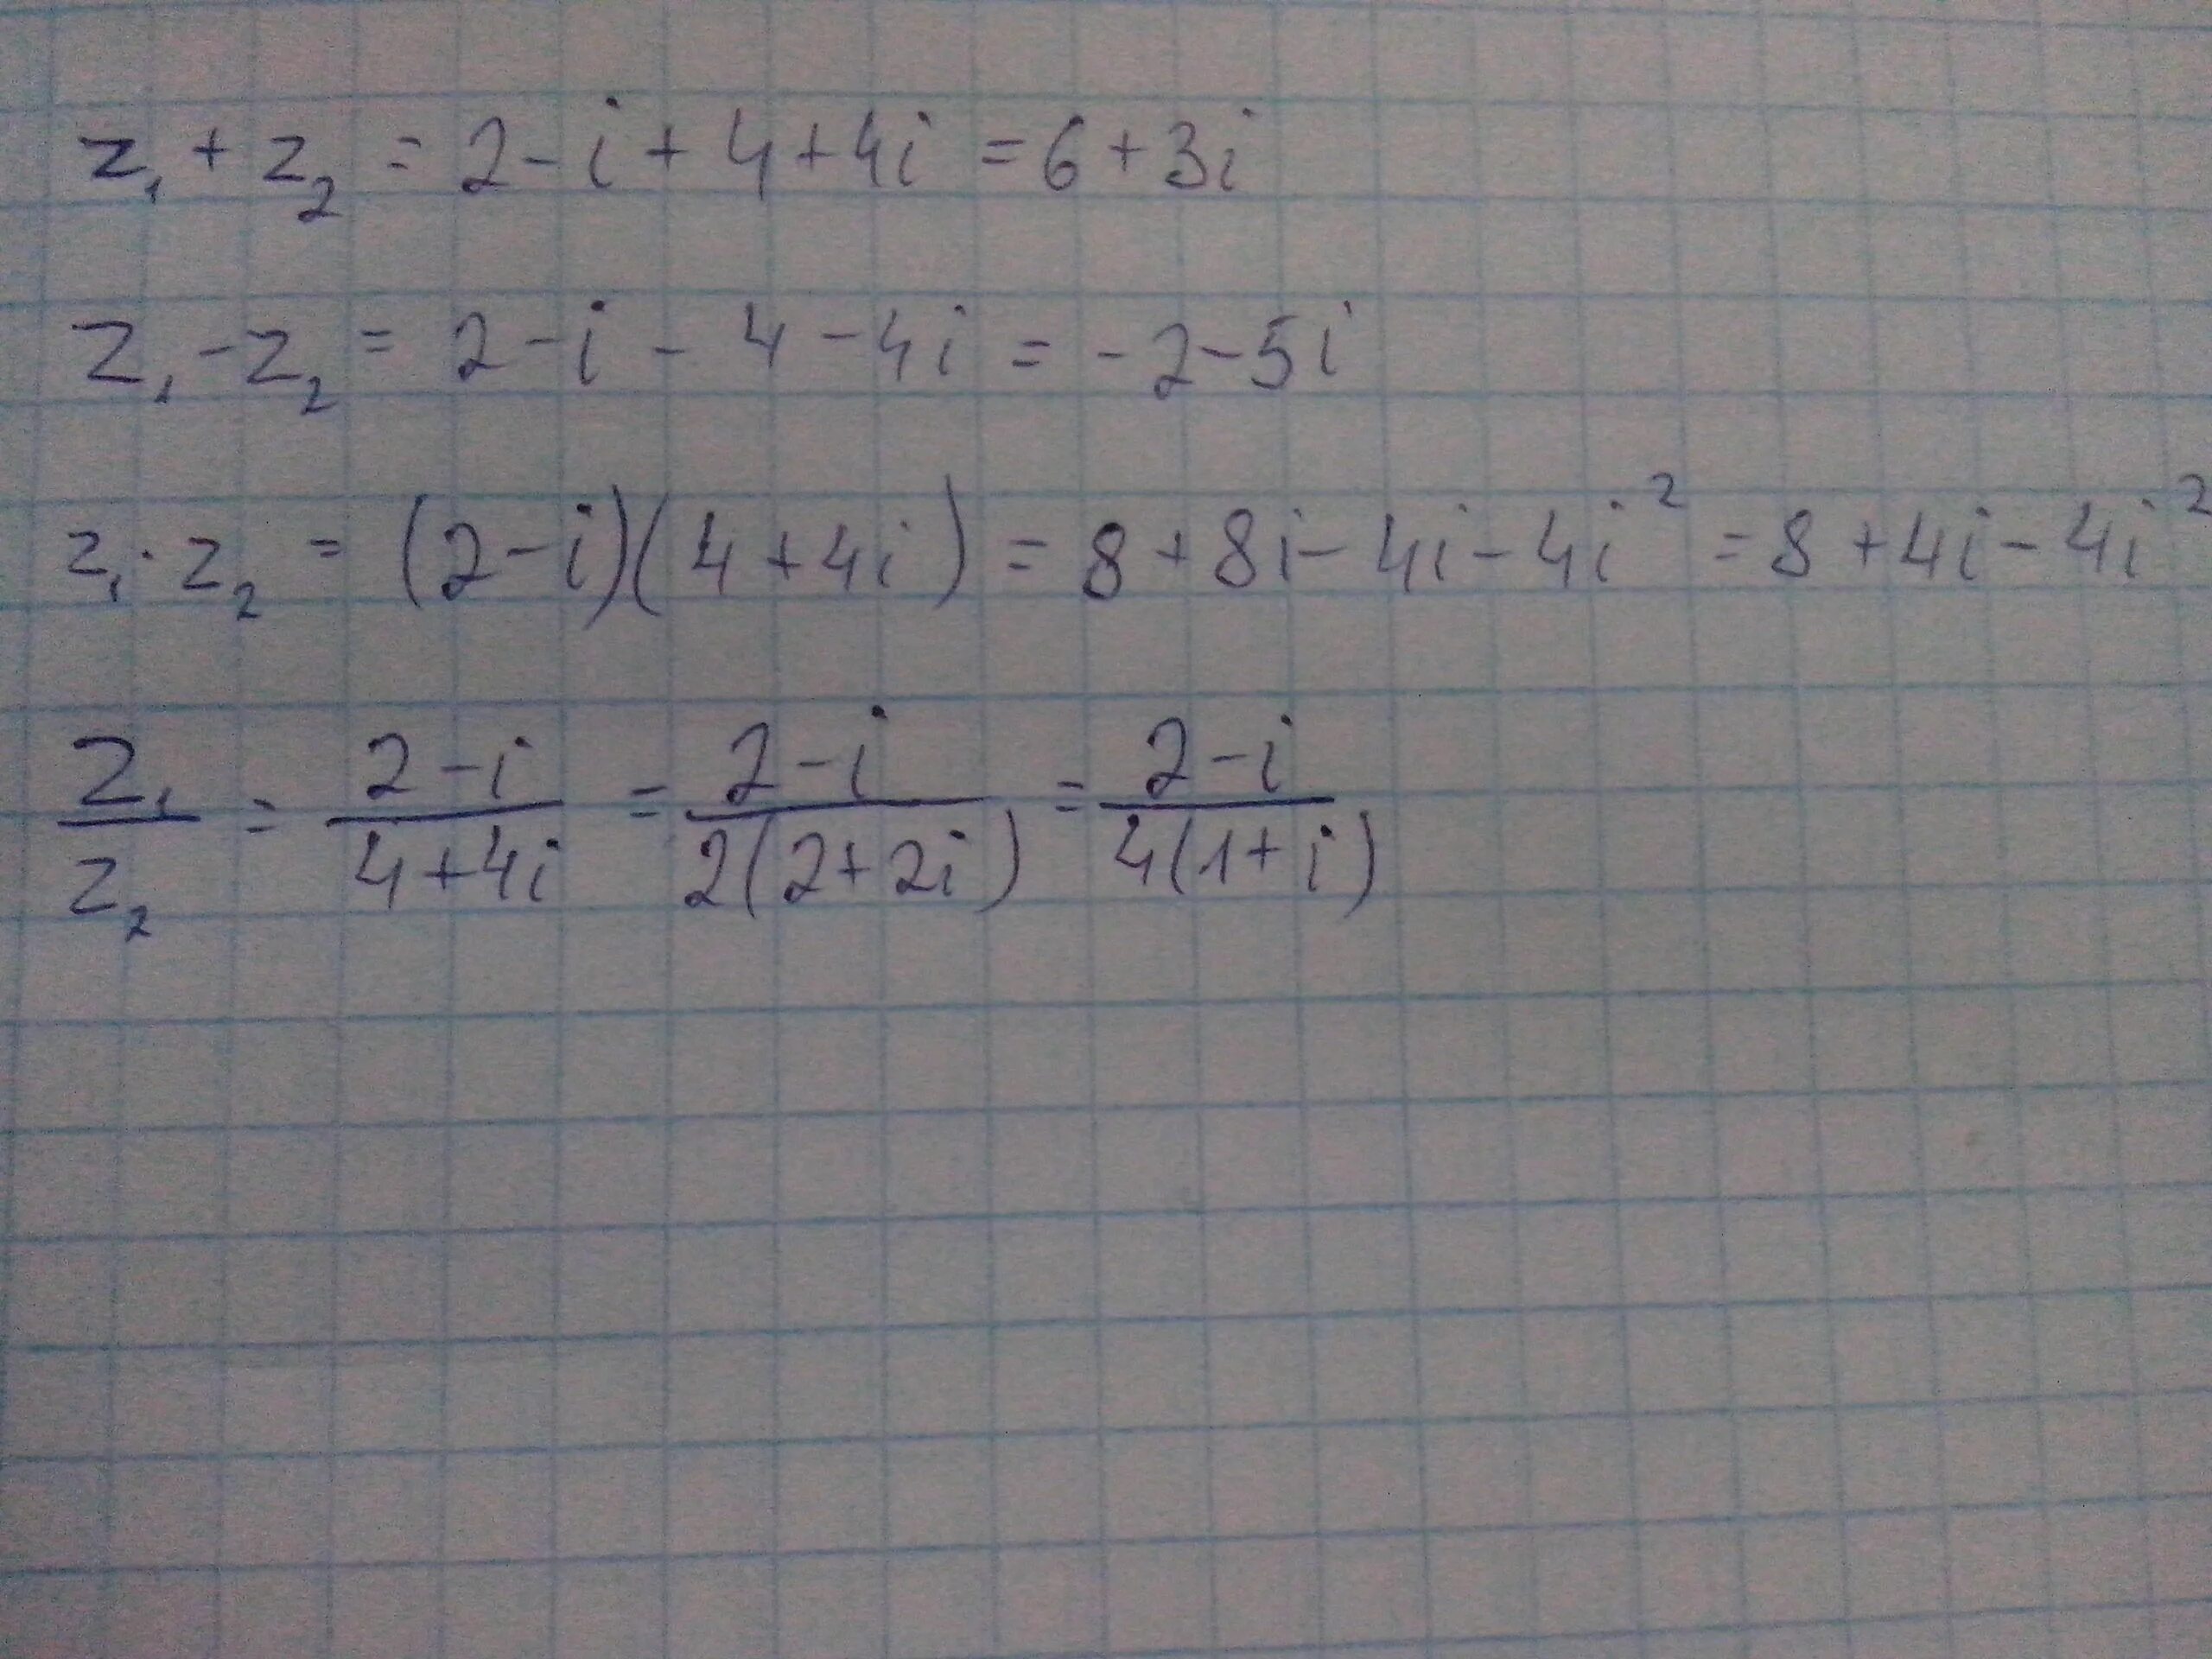 z₁ + z₂ = 2 - i + 4 + 4i = 6 + 3i
z₁ - z₂ = 2 - i - 4 - 4i = -2 - 5i
z₁ · z₂ = (2 - i)(4 + 4i) = 8 + 8i - 4i - 4i² = 8 + 4i - 4i²
z₁/z₂ = (2 - i)/(4 + 4i) = (2 - i)/(2(2 + 2i)) = (2 - i)/(4(1 + i))